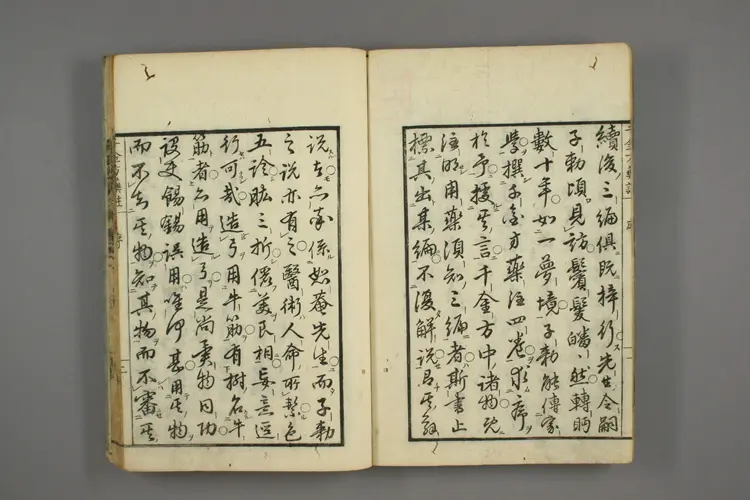 續後三編俱既梓行先生令嗣
子勅頃見訪鬢髮皤然轉眄
數十年如一夢境子勅能傳家
學撰千金方藥注四卷求序
於予援其言千金方中諸物既
注明用藥須知三編者斯書止
標其出某編不復解說昂其
說者亦係如菴先生而子勅
之說亦有之醫術人命所繫色
五診眩三折儻美艮相妄意逕
行可哉造弓用牛筋有樹名牛
筋者亦用造弓是尚異物同功
設更錫餳誤用唯何甚用其物
而不知其物知其物而不審其
千金方藥註
序